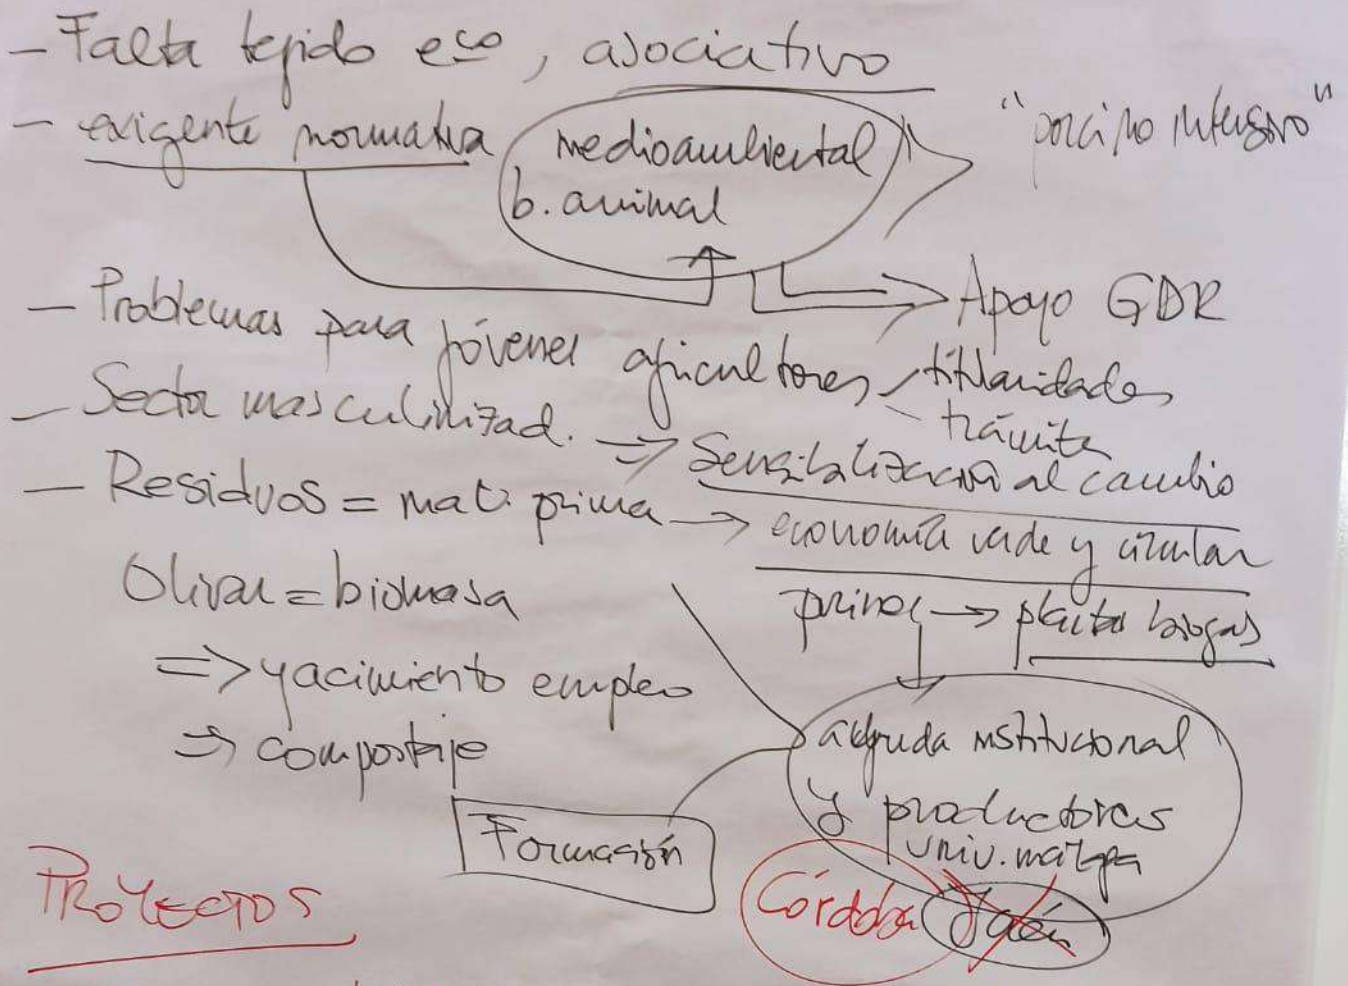 - Falta tejido eco, asociativo
- exigente normativa medioambiental
b. animal
"porcino intensivo"
Apoyo GDR
- Problemas para jóvenes agricultores - titularidades
- trámites
- Sector masculinizad. => Sensibilización al cambio
- Residuos = mat. prima -> economía verde y circular
Olivar = biomasa
=> yacimiento empleo
=> compostaje
purines -> planta biogas
ayuda institucional
y productores
univ. málaga
Formación
Córdoba Jaén
PROYECTOS